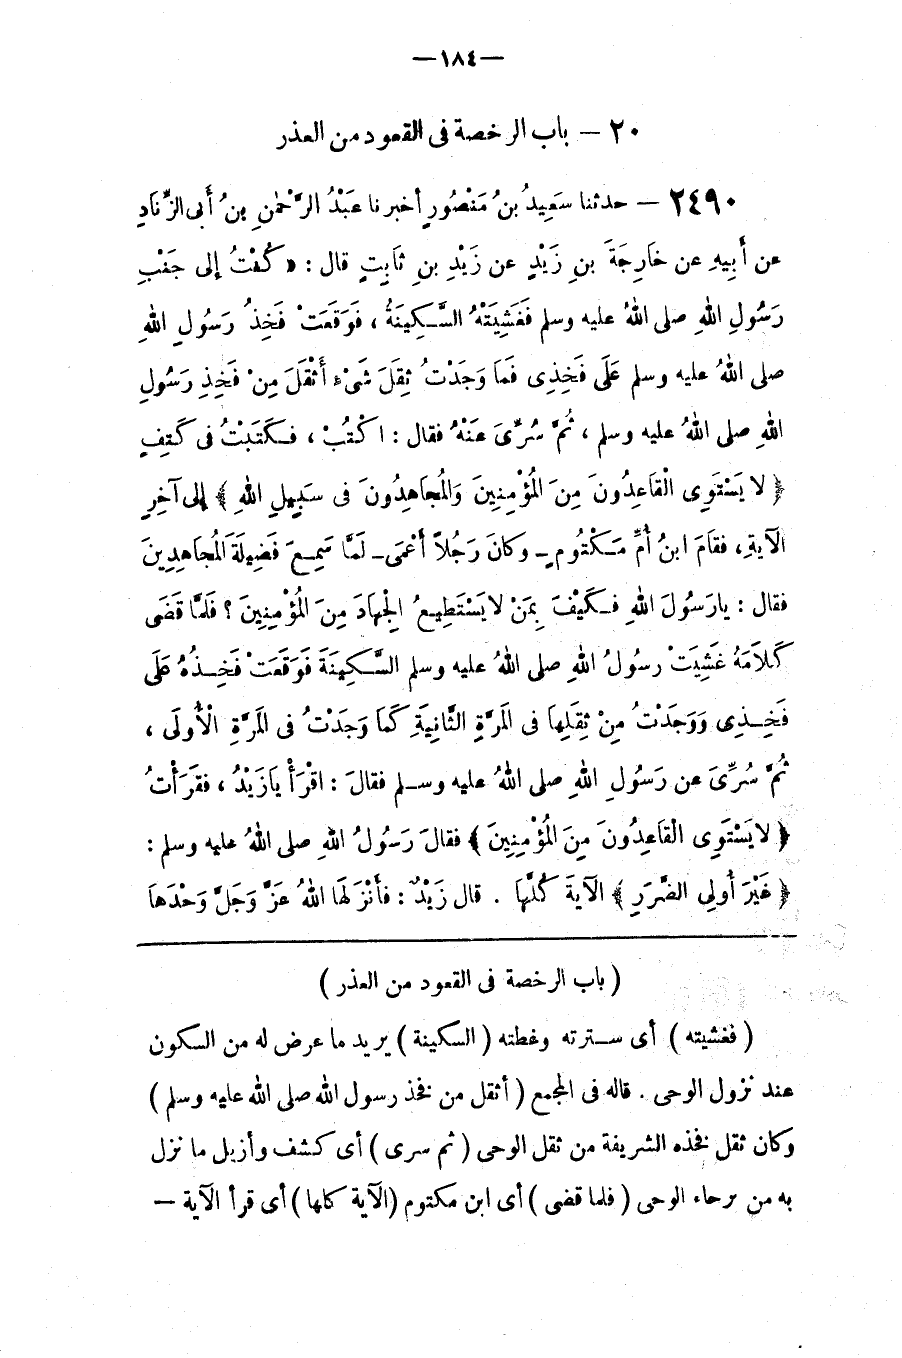 —١٨٤—
٢٠ — باب الرخصة فى القعود من العذر
٢٤٩٠ — حدثنا سَعِيدُ بنُ مَنْصُورٍ أخبرنا عَبْدُ الرَّحْمٰنِ بنُ أَبى الزِّنَادِ
عن أَبِيهِ عن خَارِجَةَ بنِ زَيْدٍ عن زَيْدِ بنِ ثَابِتٍ قال : « كُنْتُ إلى جَنْبِ
رَسُولِ اللهِ صلى اللهُ عليه وسلم فَغَشِيَتْهُ السَّكِينَةُ ، فَوَقَعَتْ فَخِذُ رَسُولِ اللهِ
صلى اللهُ عليه وسلم عَلَى فَخِذِى فَمَا وَجَدْتُ ثِقَلَ شَىْءٍ أَثْقَلَ مِنْ فَخِذِ رَسُولِ
اللهِ صلى اللهُ عليه وسلم ، ثُمَّ سُرِّىَ عَنْهُ فقال : اكْتُبْ ، فَكَتَبْتُ فى كَتِفٍ
﴿ لا يَسْتَوِى الْقَاعِدُونَ مِنَ المُؤْمِنِينَ وَالمُجَاهِدُونَ فى سَبِيلِ اللهِ ﴾ إلى آخِرِ
الآيَةِ ، فقَامَ ابنُ أُمِّ مَكْتُومٍ ـ وكانَ رَجُلاً أَعْمَى ـ لَمَّا سَمِعَ فَضِيلَةَ المُجَاهِدِينَ
فقال : يارَسُولَ اللهِ فَكَيْفَ بِمَنْ لا يَسْتَطِيعُ الْجِهَادَ مِنَ المُؤْمِنِينَ ؟ فَلمَّا قَضَى
كَلاَمَهُ غَشِيَتْ رسولُ اللهِ صلى اللهُ عليه وسلم السَّكِينَةَ فَوَقَعَتْ فَخِذُهُ عَلَى
فَخِذِى وَوَجَدْتُ مِنْ ثِقَلِهَا فى المَرَّةِ الثَّانِيَةِ كَمَا وَجَدْتُ فى المَرَّةِ الْأُولَى ،
ثُمَّ سُرِّىَ عن رَسُولِ اللهِ صلى اللهُ عليه وسلم فقالَ : اقْرَأْ يَازَيْدُ ، فقَرَأْتُ
﴿ لا يَسْتَوِى الْقَاعِدُونَ مِنَ المُؤْمِنِينَ ﴾ فقالَ رَسُولُ اللهِ صلى اللهُ عليه وسلم :
﴿ غَيْرَ أُولِى الضَّرَرِ ﴾ الآيَةَ كُلَّهَا . قال زَيْدٌ : فأَنْزَلَهَا اللهُ عَزَّ وَجَلَّ وَحْدَهَا
( باب الرخصة فى القعود من العذر )
( فغشيته ) أى سترته وغطته ( السكينة ) يريد ما عرض له من السكون
عند نزول الوحى . قاله فى المجمع ( أثقل من فخذ رسول الله صلى الله عليه وسلم )
وكان ثقل فخذه الشريفة من ثقل الوحى ( ثم سرى ) أى كشف وأزيل ما نزل
به من برحاء الوحى ( فلما قضى ) أى ابن مكتوم ( الآية كلها ) أى قرأ الآية —